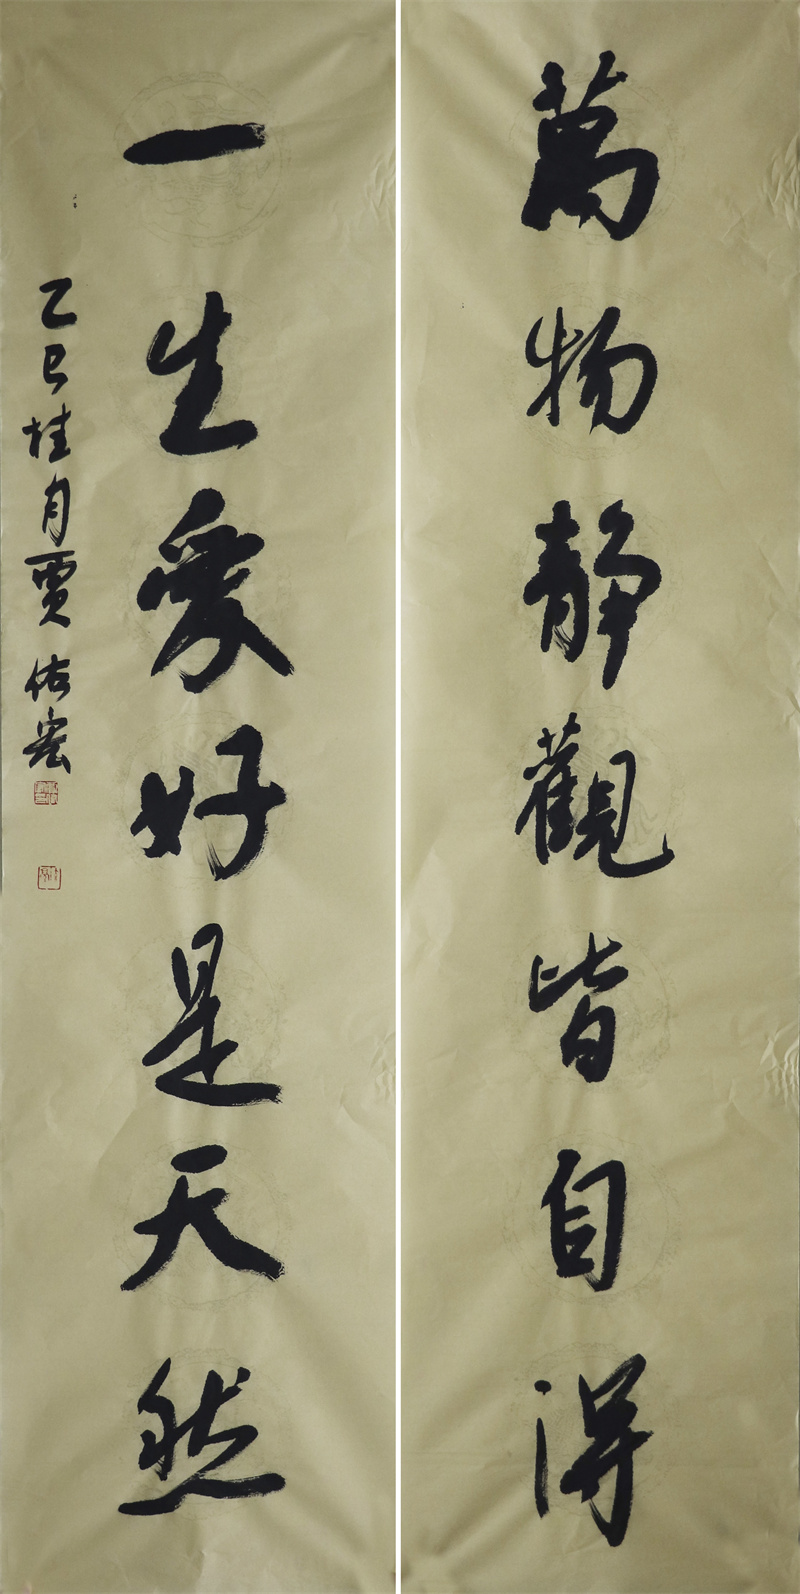 萬物靜觀皆自得
一生愛好是天然
乙巳桂月賈佑宏